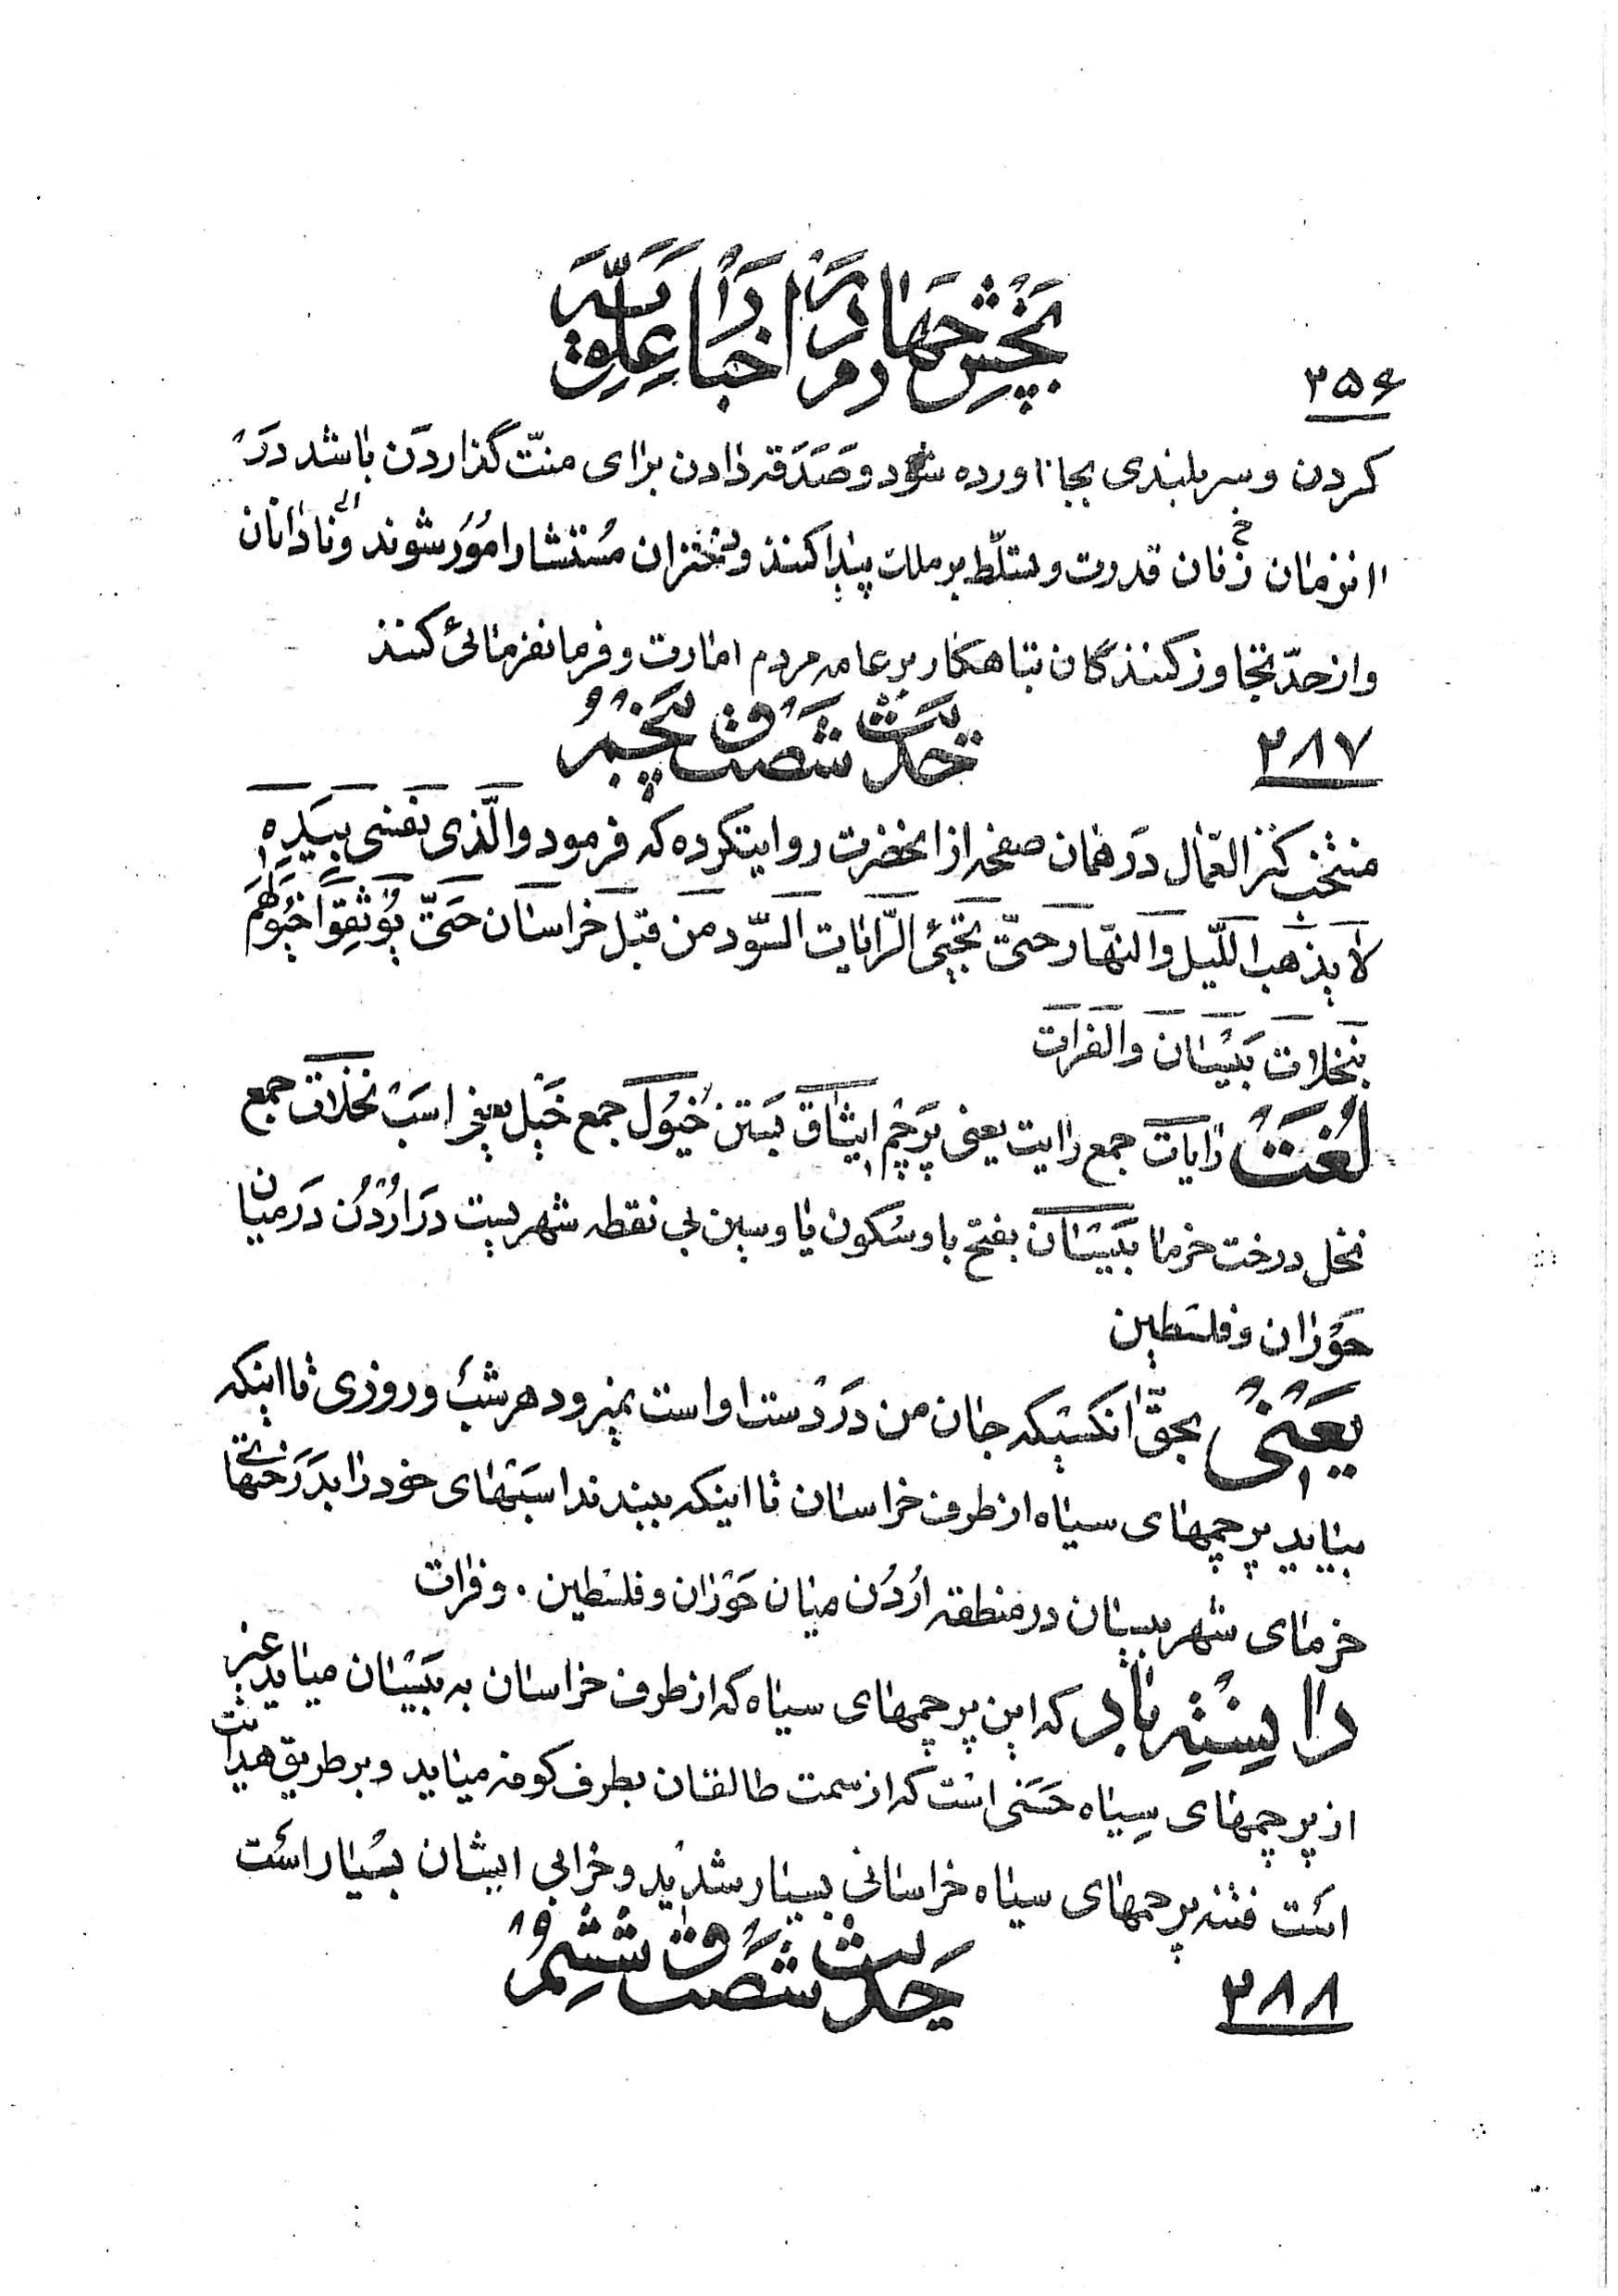 بخش چهارم در اخبار علویه
۲۵۶
کردن و سربلندی بجا اورده شود و صدقه دادن برای منّت گذاردن باشد در
انزمان زنان قدرت و تسلّط بر ملات پیدا کنند و دختران مستشار امور شوند و نادانان
و از حدّ تجاوز کنندگان تباهکار بر عامه مردم امارت و فرمانفرمائی کنند
۲۸۷
حدیث شصت و پنجم
منتخب کنز العمّال در همان صفحه از انحضرت روایتکرده که فرمود والّذی نفسی بیده
لا یذهب اللّیل والنهار حتّی تجیئ الرّایات السّود من قبل خراسان حتّی یوثقوا خیولهم
بنخلات بیسان والفرات
لغت رایات جمع رایت یعنی پرچم ایثاق بستن خیول جمع خیل یعنی اسب نخلات جمع
نخل درخت خرما بیسان بفتح با و سکون یا و سین بی نقطه شهریست در اردن در میان
حوران و فلسطین
یعنی بحقّ انکسیکه جان من در دست او است نمیرود هر شب و روزی تا اینکه
بیاید پرچمهای سیاه از طرف خراسان تا اینکه ببندند اسبهای خود را بدرختهای
خرمای شهر بیسان در منطقه اردن میان حوران و فلسطین . و فرات
دانسته باد که این پرچمهای سیاه که از طرف خراسان به بیسان میاید غیر
از پرچمهای سیاه حسنی است که از سمت طالقان بطرف کوفه میاید و بر طریق هدایت
است فتنه پرچمهای سیاه خراسانی بسیار شدید و خرابی ایشان بسیار است
۲۸۸
حدیث شصت و ششم